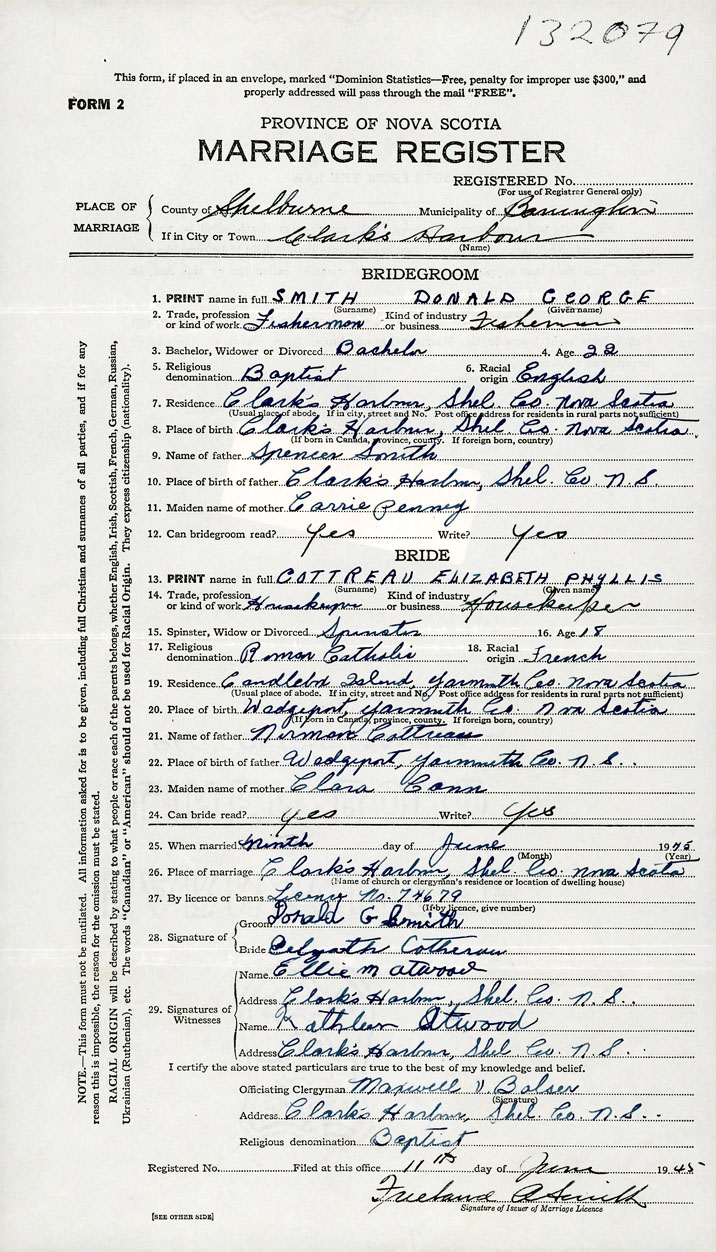 132079
This form, if placed in an envelope, marked "Dominion Statistics—Free, penalty for improper use $300," and
properly addressed will pass through the mail "FREE".
FORM 2
PROVINCE OF NOVA SCOTIA
MARRIAGE REGISTER
REGISTERED No.
(For use of Registrar General only)
PLACE OF MARRIAGE
County of Shelburne Municipality of Barrington
If in City or Town Clark's Harbour
(Name)
BRIDEGROOM
1. PRINT name in full SMITH DONALD GEORGE
(Surname) (Given name)
2. Trade, profession or kind of work Fisherman Kind of industry or business Fisherman
3. Bachelor, Widower or Divorced Bachelor 4. Age 22
5. Religious denomination Baptist 6. Racial origin English
7. Residence Clark's Harbour, Shel. Co. Nova Scotia
(Usual place of abode. If in city, street and No. Post office address for residents in rural parts not sufficient)
8. Place of birth Clark's Harbour, Shel Co. Nova Scotia.
(If born in Canada, province, county. If foreign born, country)
9. Name of father Spencer Smith
10. Place of birth of father Clark's Harbour, Shel. Co N.S
11. Maiden name of mother Carrie Penney
12. Can bridegroom read? Yes Write? Yes
BRIDE
13. PRINT name in full COTTREAU ELIZABETH PHYLLIS
(Surname) (Given name)
14. Trade, profession or kind of work Housekeeper Kind of industry or business Housekeeper
15. Spinster, Widow or Divorced Spinster 16. Age 18
17. Religious denomination Roman Catholic 18. Racial origin French
19. Residence Island, Yarmouth Co. Nova Scotia
(Usual place of abode. If in city, street and No. Post office address for residents in rural parts not sufficient)
20. Place of birth Wedgeport, Yarmouth Co. Nova Scotia
(If born in Canada, province, county. If foreign born, country)
21. Name of father Norman Cottreau
22. Place of birth of father Wedgeport, Yarmouth Co. N.S.
23. Maiden name of mother Clara
24. Can bride read? yes Write? Yes
25. When married Ninth day of June 1945
(Month) (Year)
26. Place of marriage Clark's Harbour, Shel. Co. Nova Scotia
(Name of church or clergyman's residence or location of dwelling house)
27. By licence or banns Licence No. 74679
(If by licence, give number)
28. Signature of
Groom Donald G Smith
Bride
29. Signatures of Witnesses
Name Ellie M Atwood
Address Clark's Harbour, Shel. Co. N.S.
Name Kathleen Atwood
Address Clark's Harbour, Shel Co. N.S.
I certify the above stated particulars are true to the best of my knowledge and belief.
Officiating Clergyman Maxwell V. Balser
(Signature)
Address Clark's Harbour, Shel. Co. N.S.
Religious denomination Baptist
Registered No. Filed at this office 11th day of June 1945
Freeland A Smith
Signature of Issuer of Marriage Licence
[SEE OTHER SIDE]
NOTE.—This form must not be mutilated. All information asked for is to be given, including full Christian and surnames of all parties, and if for any
reason this is impossible, the reason for the omission must be stated.
RACIAL ORIGIN will be described by stating to what people or race each of the parents belongs, whether English, Irish, Scottish, French, German, Russian,
Ukrainian (Ruthenian), etc. The words "Canadian" or "American" should not be used for Racial Origin. They express citizenship (nationality).